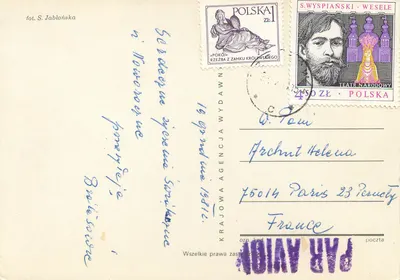 fot. S. Jabłońska
POLSKA 1 ZŁ
"POKÓJ"
RZEŹBA Z ZAMKU KRÓLEWSKIEGO
S. WYSPIAŃSKI - WESELE
TEATR NARODOWY
4,50 ZŁ POLSKA
Serdeczne życzenia Świąteczne
i Noworoczne
przesyłają
19 grudnia 1981 r.
KRAJOWA AGENCJA WYDAWN
Wszelkie prawa zas
W. Pani
Archut Helena
75014 Paris 23 Pernety
France
poczta
PAR AVION